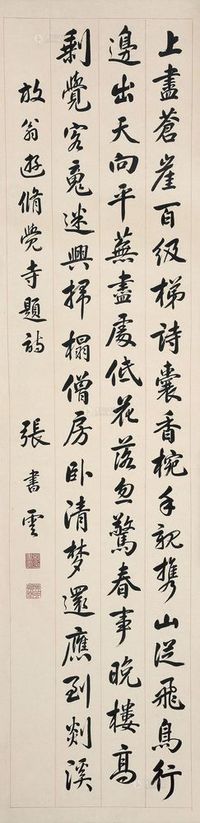 上盡蒼崖百级梯詩囊香椀手親携山從飛鳥行
邊出天向平蕪盡處低花落忽驚春事晚樓高
剩覺客魂迷興掃榻僧房卧清梦還應到剡溪
放翁遊脩覺寺題詩 張書雲